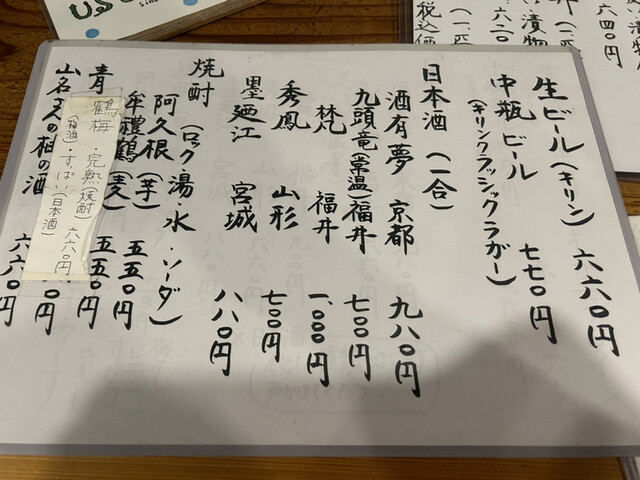 生ビール(キリン) 六六〇円
中瓶ビール 七七〇円
(キリンクラッシックラガー)
日本酒 (一合)
酒有夢 京都 九八〇円
九頭竜(常温)福井 七〇〇円
梵 福井 一、〇〇〇円
秀鳳 山形 七〇〇円
墨廼江 宮城 八八〇円
焼酎 (ロック・湯・水・ソーダ)
阿久根(芋) 五五〇円
牟禮鶴(麦) 五五〇円
青
鶴梅・完熟(焼酎) 六六〇円
(梅酒)・すっぱい(日本酒)
六六〇円
税込価